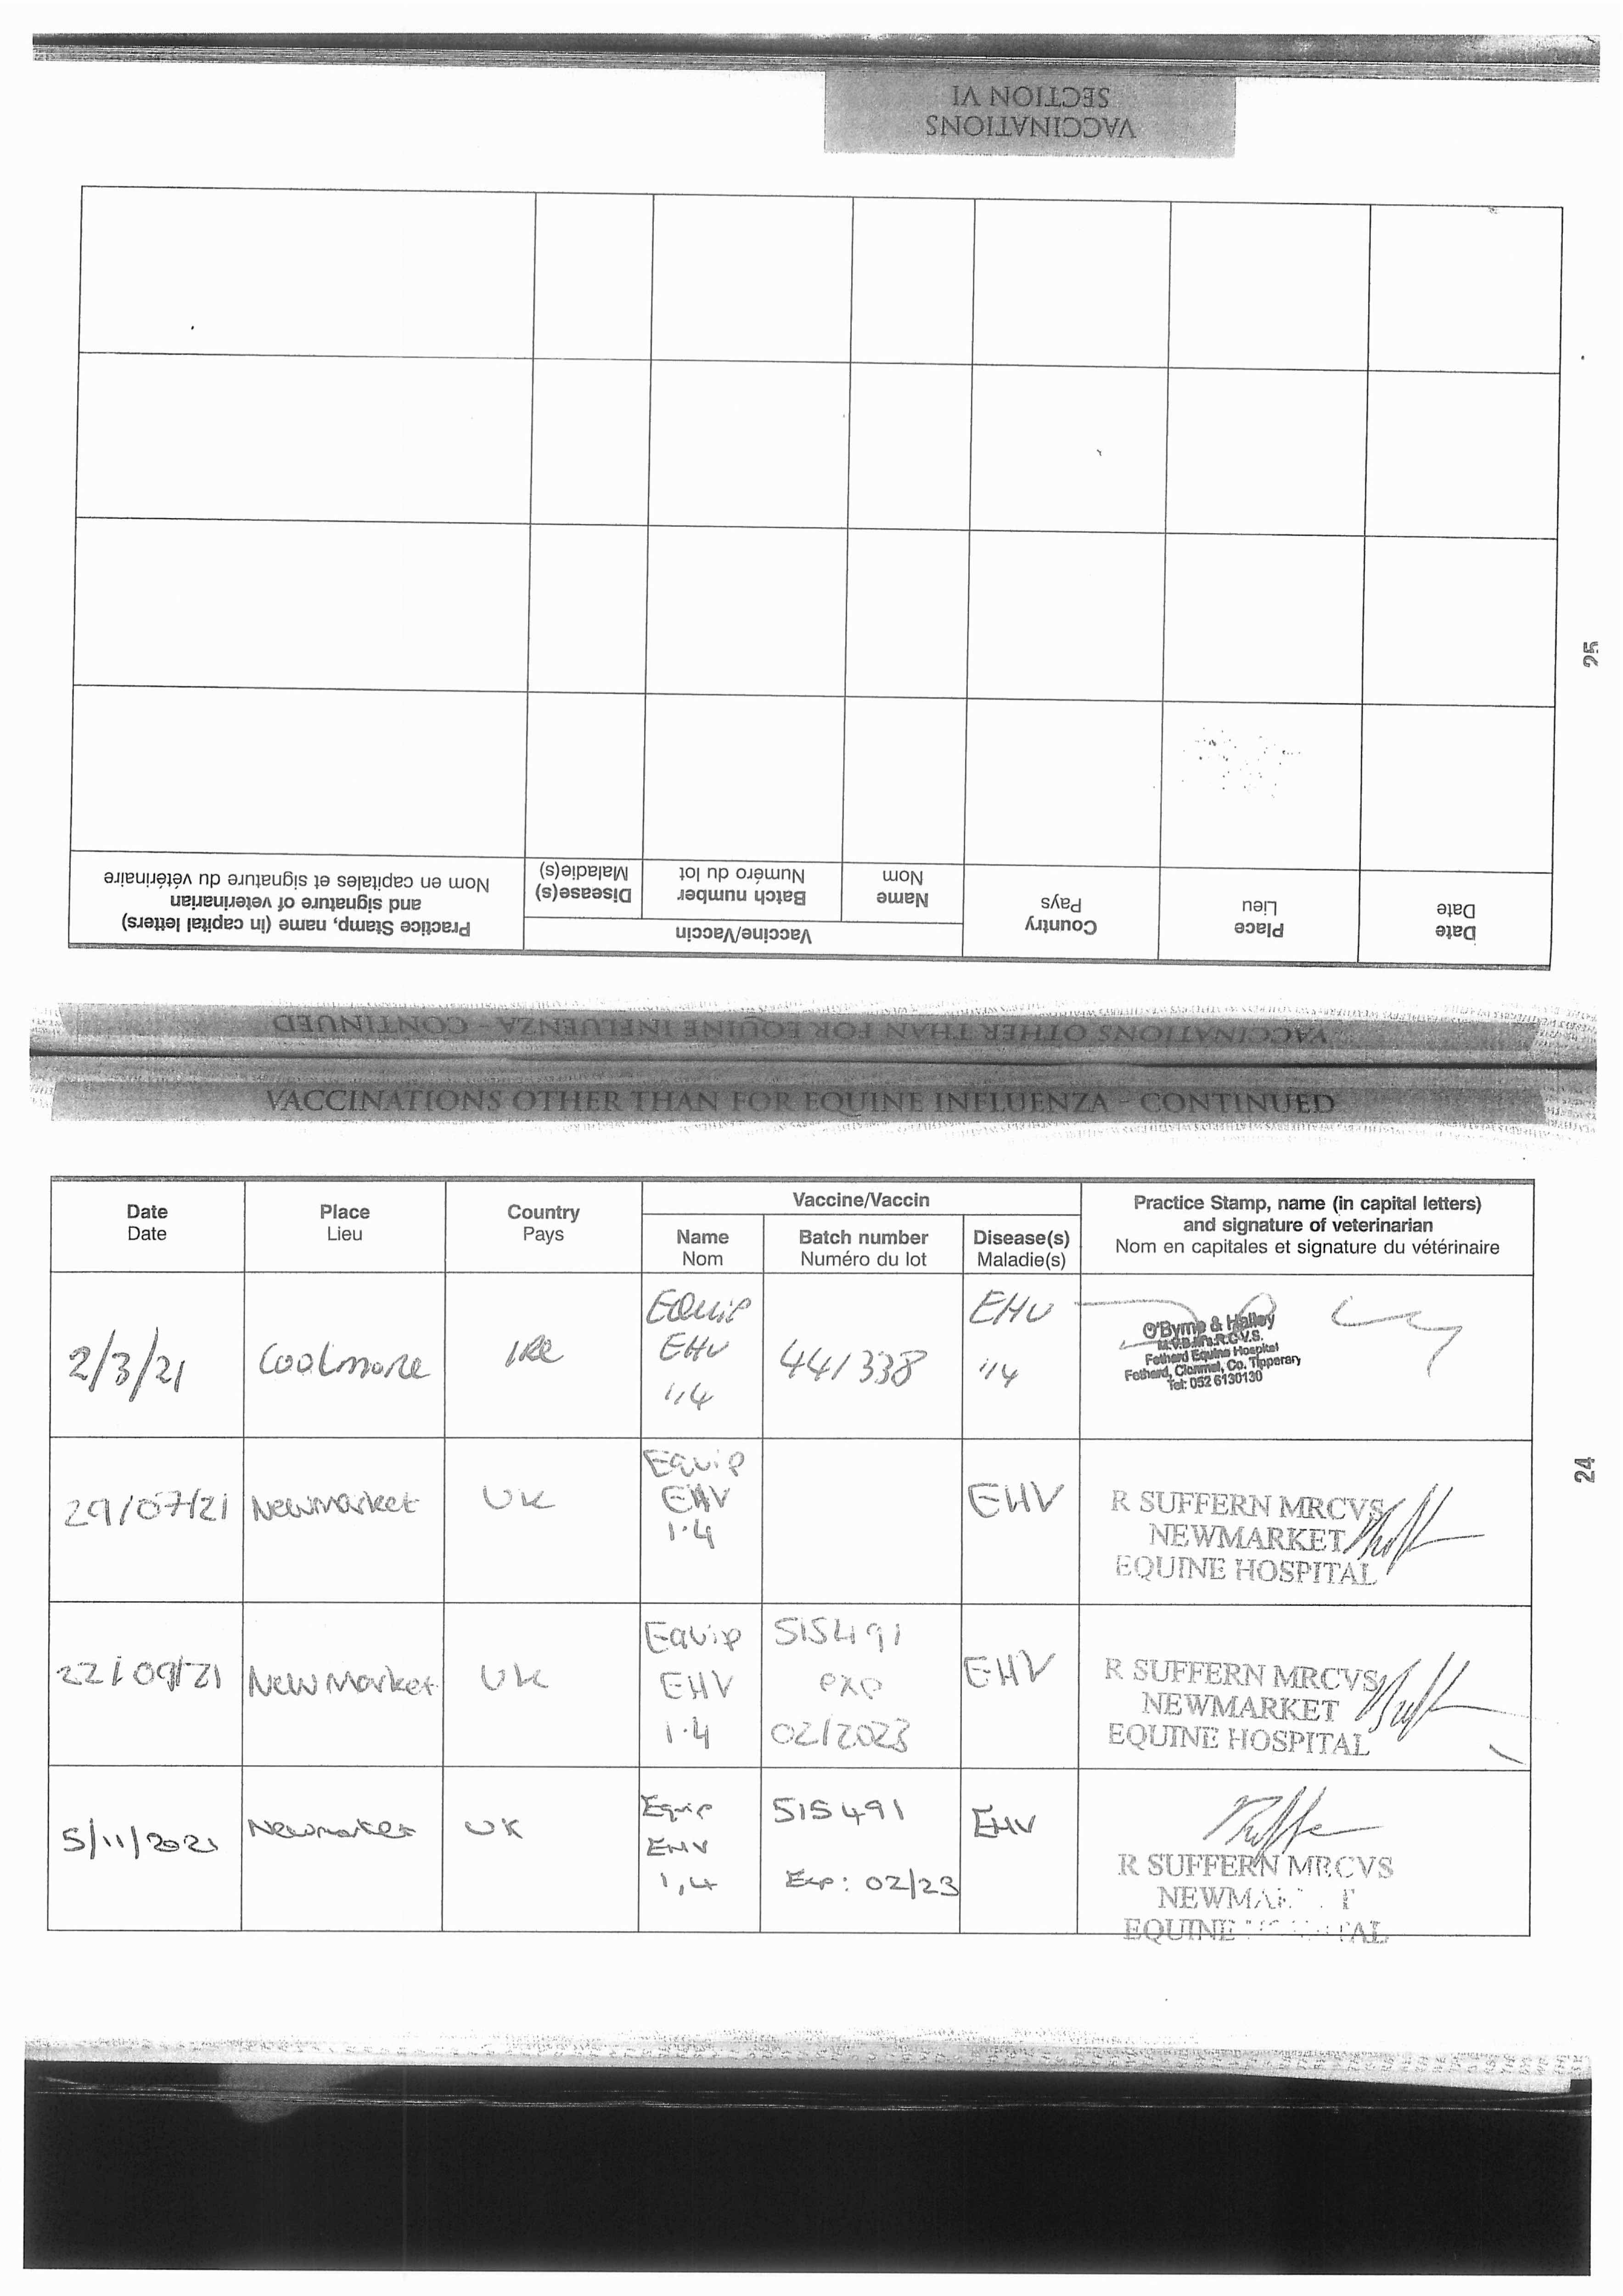 VACCINATIONS
SECTION VI
Date
Date
Place
Lieu
Country
Pays
Vaccine/Vaccin
Name
Nom
Batch number
Numéro du lot
Disease(s)
Maladie(s)
Practice Stamp, name (in capital letters)
and signature of veterinarian
Nom en capitales et signature du vétérinaire
25
VACCINATIONS OTHER THAN FOR EQUINE INFLUENZA - CONTINUED
VACCINATIONS OTHER THAN FOR EQUINE INFLUENZA - CONTINUED
Date
Date
Place
Lieu
Country
Pays
Vaccine/Vaccin
Name
Nom
Batch number
Numéro du lot
Disease(s)
Maladie(s)
Practice Stamp, name (in capital letters)
and signature of veterinarian
Nom en capitales et signature du vétérinaire
2/3/21
Coolmore
IRe
Equip
EHV
1,4
441338
EHV
1/4
O'Byrne & Halley
M.V.B. M.R.C.V.S.
Fethard Equine Hospital
Fethard, Clonmel, Co. Tipperary
Tel: 052 6130130
29/07/21
Newmarket
UK
Equip
EHV
1.4
EHV
R SUFFERN MRCVS
NEWMARKET
EQUINE HOSPITAL
24
22/09/21
NewMarket
UK
Equip
EHV
1.4
515491
exp
02/2023
EHV
R SUFFERN MRCVS
NEWMARKET
EQUINE HOSPITAL
5/11/2021
Newmarket
UK
Equip
EHV
1,4
515491
Exp: 02/23
EHV
R SUFFERN MRCVS
EQUINE